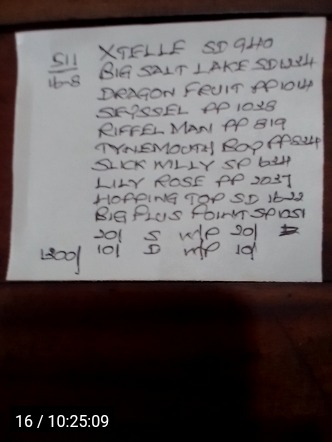 XTELLE SD 940
511 BIG SALT LAKE SD 1234
16-8 DRAGON FRUIT PP 1014
SEYSSEL PP 1038
RIFFEL MAN PP 819
TYNEMOUTH ROP PP 534
SLICK WILLY SP 634
LILY ROSE PP 2037
HOPPING TOP SD 1622
BIG PLUS POINT SP 1051
20/ S W/P 20/
1200/ 10/ D W/P 10/
16 / 10:25:09